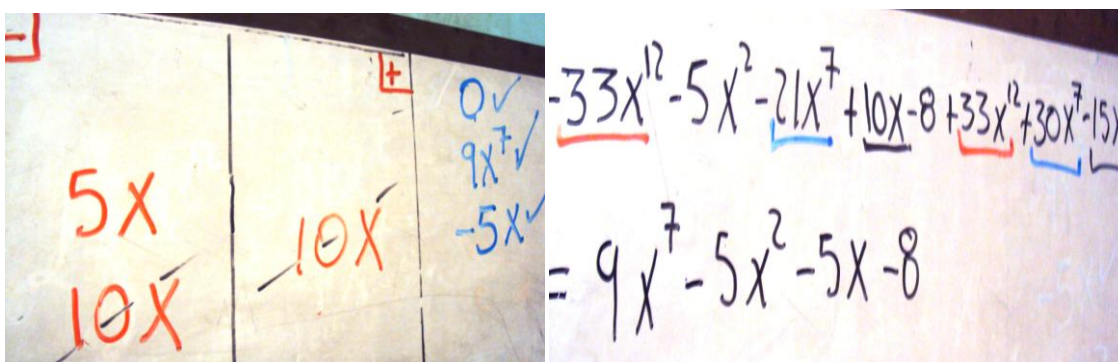 -
+
0✓
9x⁷✓
-5x✓
5x
10x
10x
-33x¹²-5x²-21x⁷+10x-8+33x¹²+30x⁷-15x
=9x⁷-5x²-5x-8